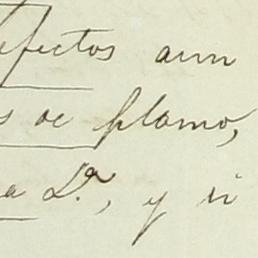 efectos aun
s de plomo,
a D.ª, y si